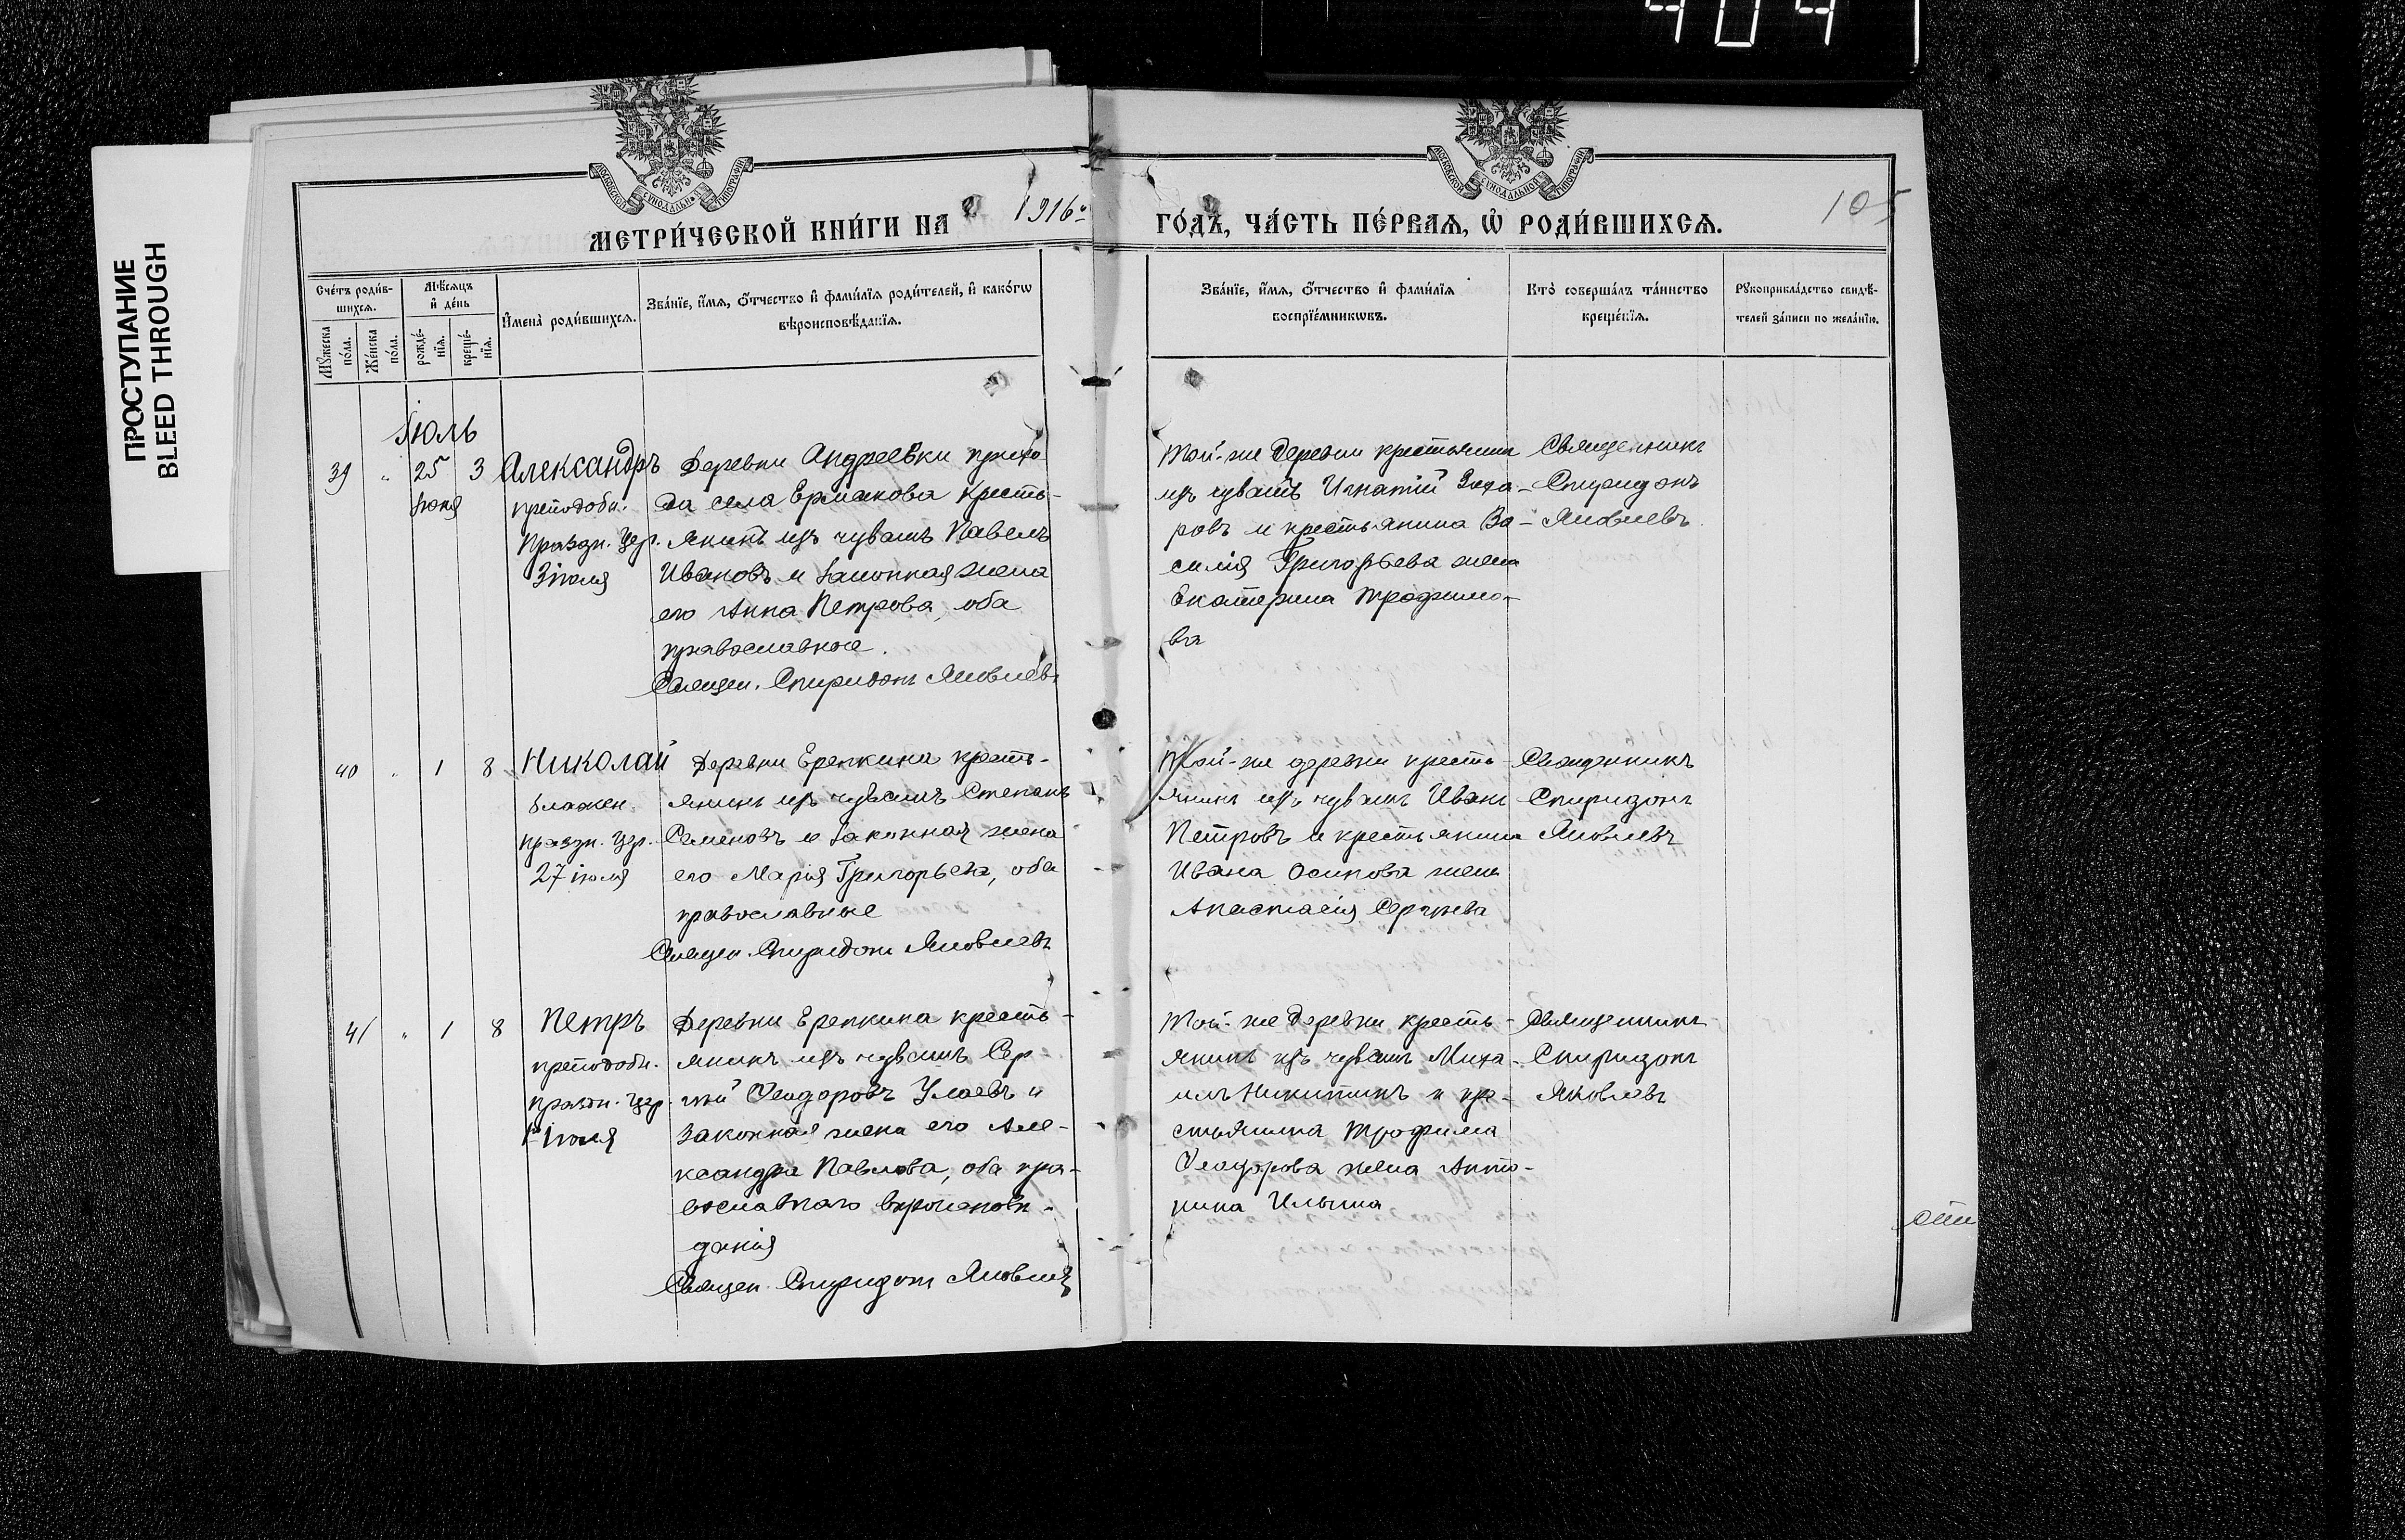 404
ПРОСТУПАНИЕ
BLEED THROUGH
МОСКОВСКОЙ СѴНОДАЛЬНОЙ ТИПОГРАФІИ
МОСКОВСКОЙ СѴНОДАЛЬНОЙ ТИПОГРАФІИ
МЕТРИ́ЧЕСКОЙ КНИ́ГИ НА 1916й
ГО́ДЪ, ЧА́СТЬ ПЕ́РВАѦ, Ѽ РОДИ́ВШИХСѦ.
105
Сче́тъ роди́в-
шихсѧ.
Мꙋ́жеска по́ла.
Же́нска по́ла.
Мѣ́сѧцъ и҆ де́нь
рожде́-нїѧ.
креще́-нїѧ.
И҆мена̀ роди́вшихсѧ.
Зва́нїе, и҆́мѧ, ѻ҆́тчество и҆ фами́лїѧ роди́телей, и҆ како́гѡ
вѣроисповѣ́данїѧ.
Зва́нїе, и҆́мѧ, ѻ҆́тчество и҆ фами́лїѧ
воспрїе́мникѡвъ.
Кто̀ соверша́лъ та́инство
креще́нїѧ.
Рꙋкоприкла́дство свидѣ́-
телей за́писи по жела́нїю.
Іюль
39 " 25 3
Іюня
Александръ
преподобн.
Праздн. цер.
3 іюля
Деревни Андреевки прихо
да села Ермакова кресть-
янинъ изъ чувашъ Павелъ
Ивановъ и законная жена
его Анна Петрова, оба
православные.
Священ. Спиридонъ Яковлевъ
Той-же деревни крестьянин
изъ чувашъ Игнатій Заха-
ровъ и крестьянина Ва-
силія Григорьева жена
Екатерина Трофимо-
ва
Священникъ
Спиридонъ
Яковлевъ
40 " 1 8
Николай
блажен.
праздн. цер.
27 іюля
Деревни Ерепкина кресть-
янинъ изъ чувашъ Степанъ
Семеновъ и законная жена
его Марія Григорьева, оба
православные
Священ. Спиридонъ Яковлевъ
Той-же деревни кресть-
янинъ изъ чувашъ Иванъ
Петровъ и крестьянина
Ивана Осипова жена
Анастасія Сергѣева
Священникъ
Спиридонъ
Яковлевъ
41 " 1 8
Петръ
преподобн.
праздн. цер.
1го Іюля
Деревни Ерепкина кресть-
янинъ изъ чувашъ Сер-
гѣй Ѳеодоровъ Улаевъ и
законная жена его Але-
ксандра Павлова, оба пра-
вославнаго вѣроисповѣ-
данія
Священ. Спиридонъ Яковлевъ
Той-же деревни кресть-
янинъ изъ чувашъ Миха-
илъ Никитинъ и кре-
стьянина Трофима
Ѳеодорова жена Анто-
нина Ильина
Священникъ
Спиридонъ
Яковлевъ